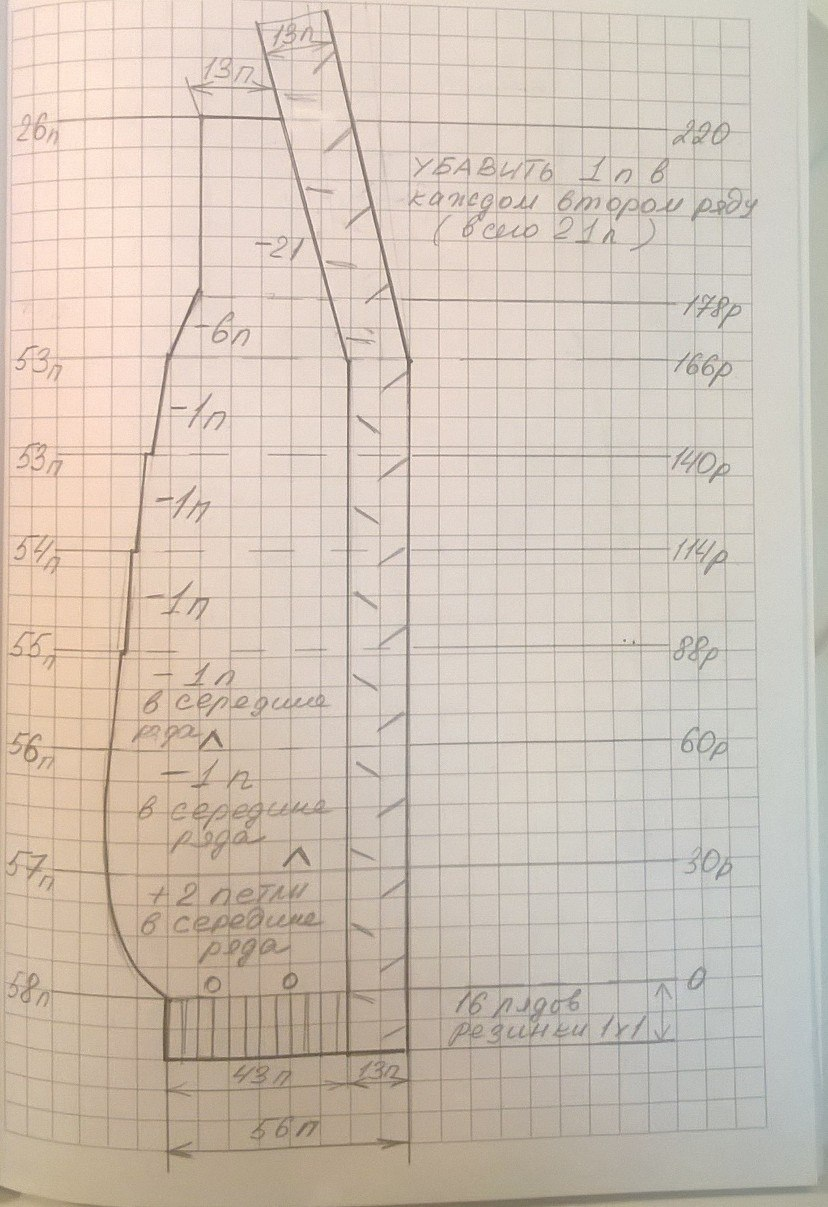 13п
13п
26п
220
УБАВИТЬ 1п в
каждом втором ряду
(всего 21п)
-21
178р
-6п
53п
166р
-1п
53п
140р
-1п
54п
114р
-1п
55п
88р
-1п
в середине
ряда
56п
60р
-1п
в середине
ряда
57п
30р
+2 петли
в середине
ряда
58п
0
16 рядов
резинки 1х1
43п
13п
56п